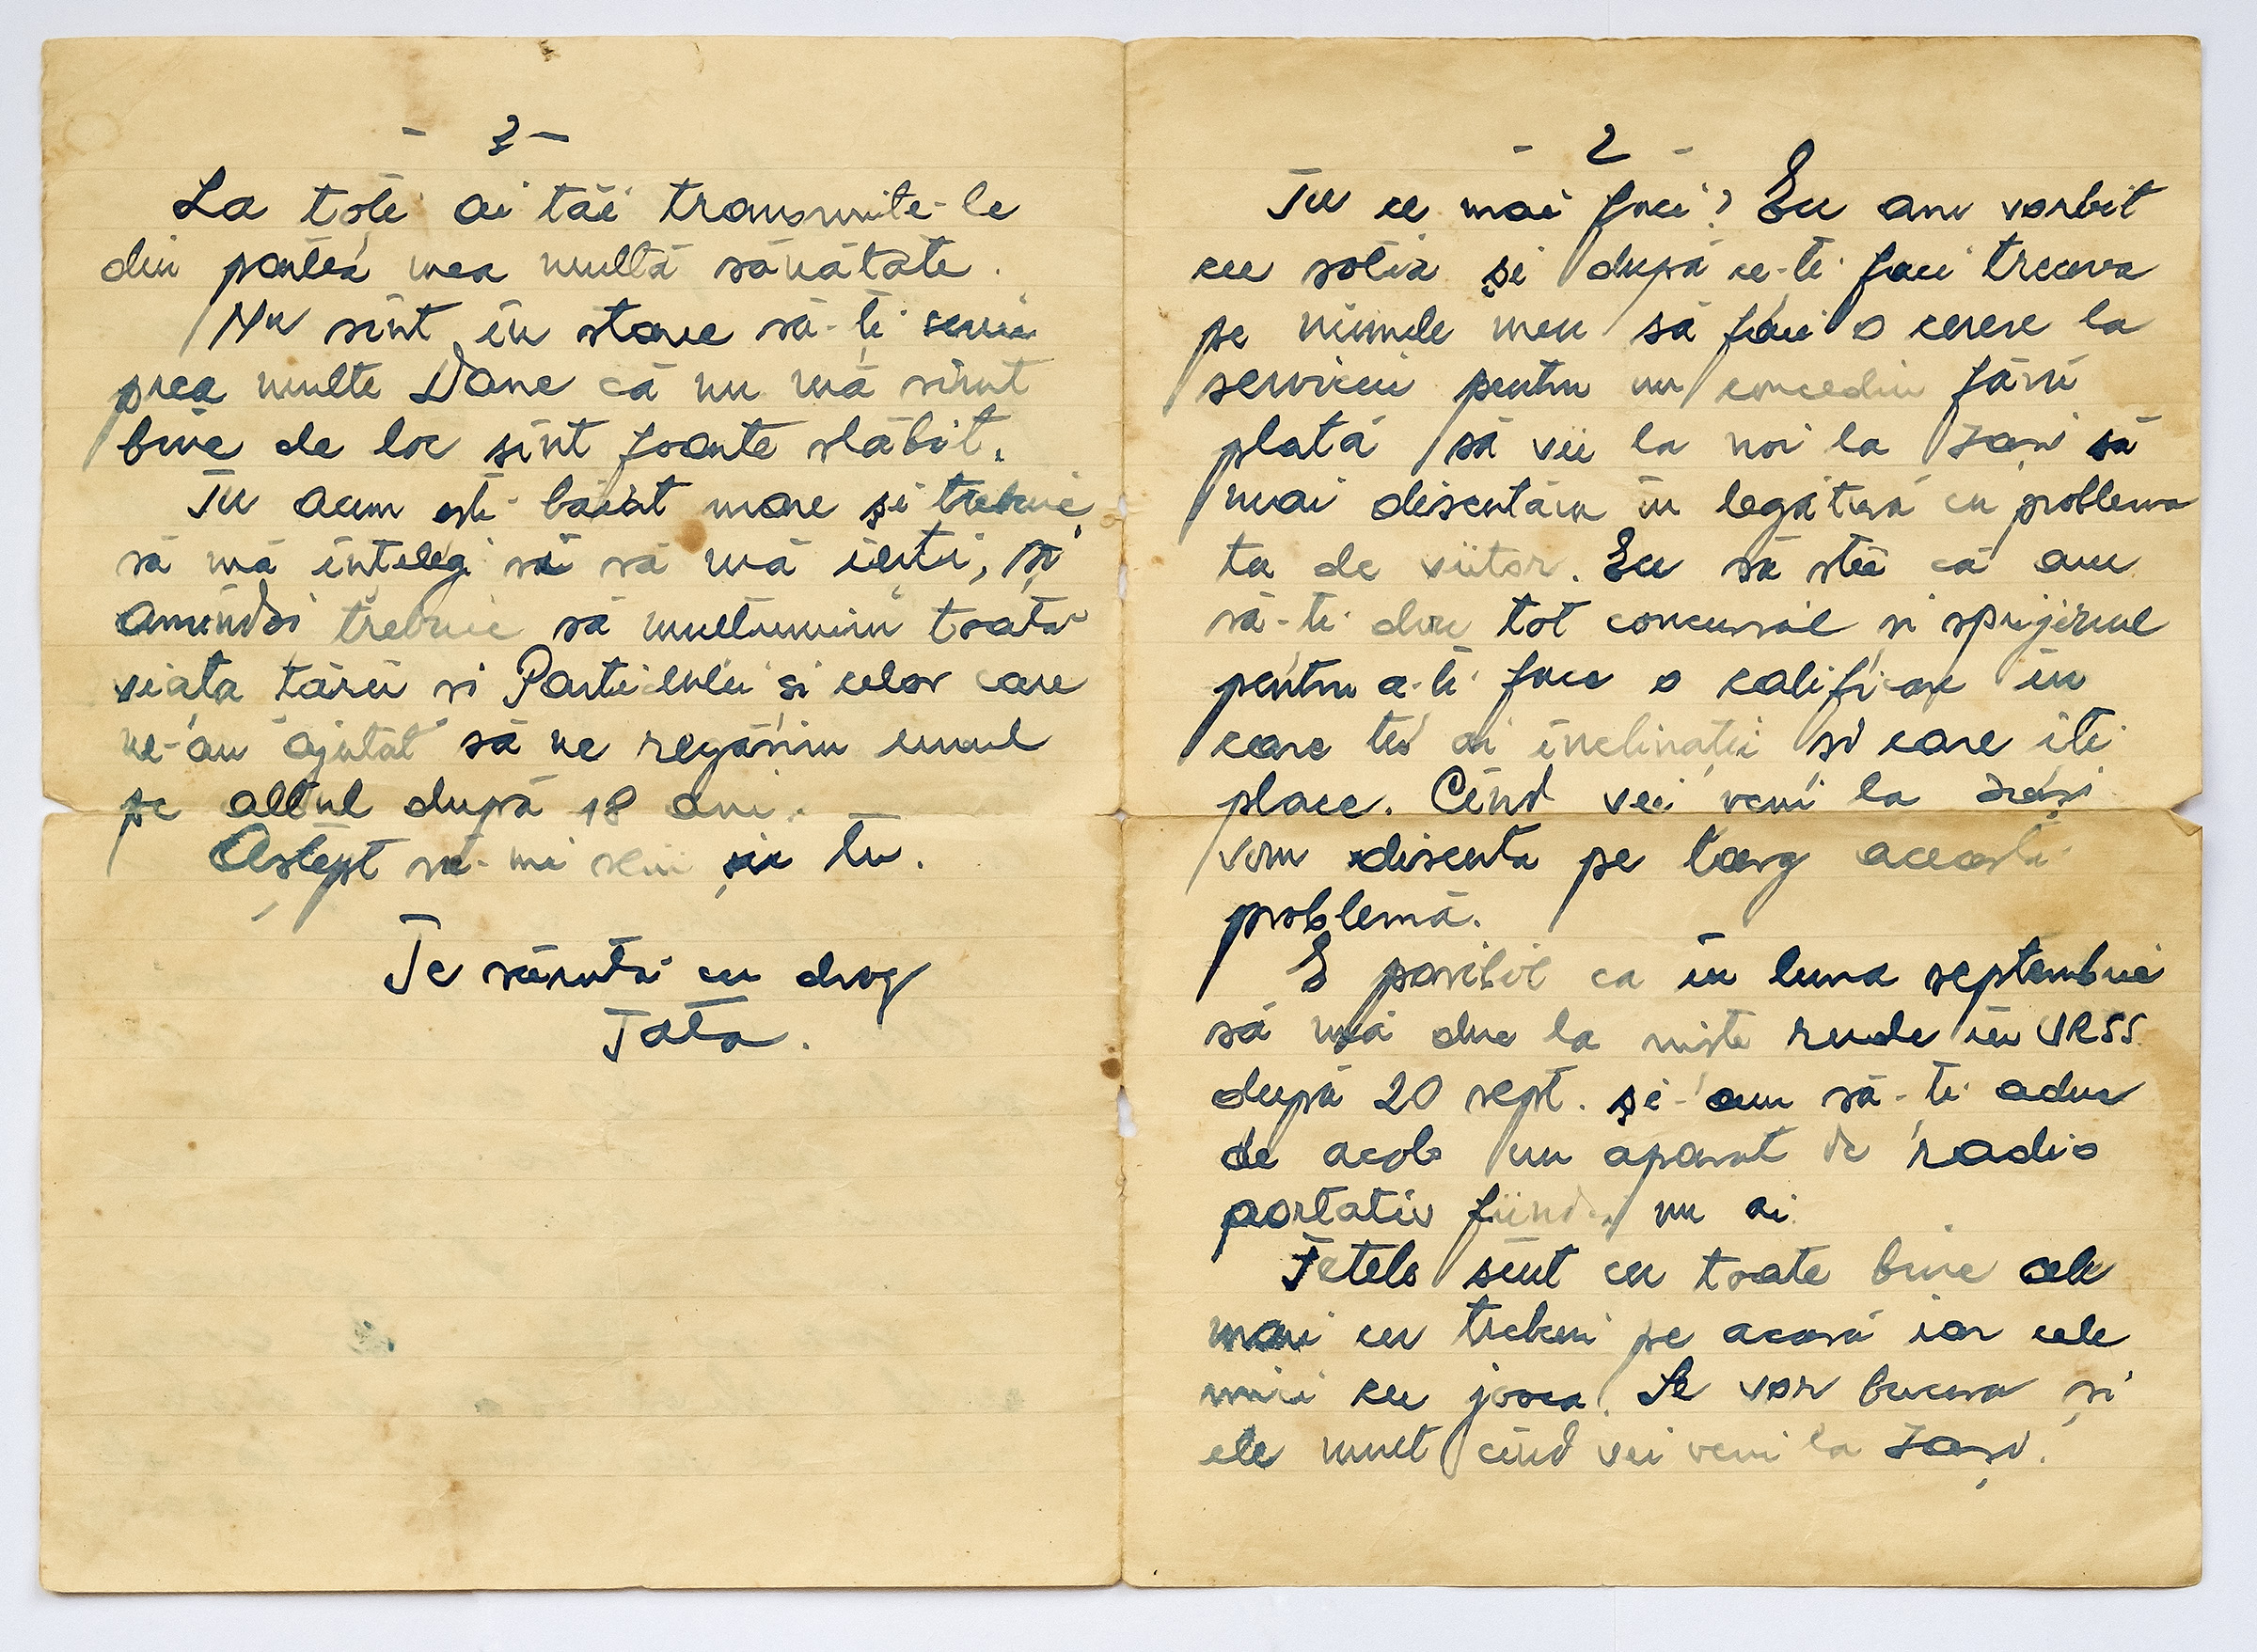 - 2 -
Tu ce mai faci? Eu am vorbit
cu soția și după ce-ți faci treava
pe numele meu să faci o cerere la
serviciu pentru un concediu fără
plată să vii la noi la Iași să
mai discutăm în legătură cu problema
ta de viitor. Eu să știi că am
să-ți dau tot concursul și sprijinul
pentru a-ți face o calificare în
care tu ai înclinații și care îți
place. Cînd vei veni la Iași
vom discuta pe larg această
problemă.
E posibil ca în luna septembrie
să mă duc la niște rude în URSS
după 20 sept. și am să-ți aduc
de acolo un aparat de radio
portativ fiindcă nu ai.
Fetele sînt cu toate bine cele
mari cu treburi pe acasă iar cele
mici cu joaca. Se vor bucura și
ele mult cînd vei veni la Iași.
- 3 -
La toți ai tăi transmite-le
din partea mea multă sănătate.
Nu sînt în stare să-ți scriu
prea multe Dane că nu mă simt
bine de loc sînt foarte slăbit.
Tu acum ești băiat mare și trebuie
să mă înțelegi să să mă ierți, și
amîndoi trebuie să mulțumim toată
viața țării și Partidului și celor care
ne-au ajutat să ne regăsim unul
pe altul după 18 ani.
Aștept să-mi scrii și tu.
Te sărută cu drag
Tata.